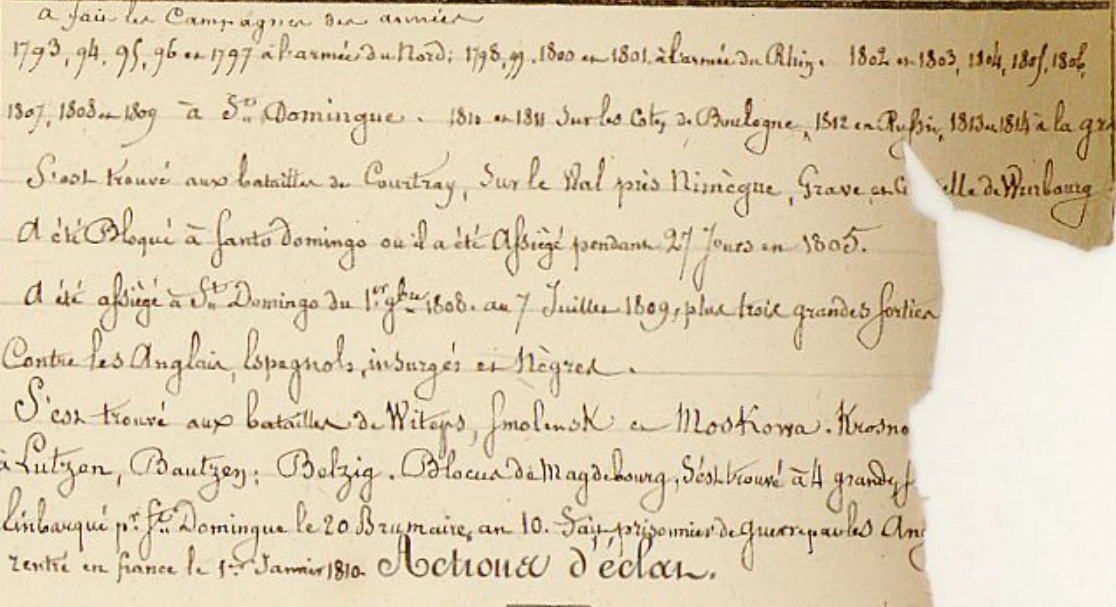 a fait les Campagnes des armées
1793, 94, 95, 96 et 1797 à l'armée du Nord; 1798, 99, 1800 et 1801 à l'armée du Rhin. 1802 et 1803, 1804, 1805, 1806,
1807, 1808 et 1809 à St. Domingue. 1810 et 1811 Sur les Cotes de Boulogne, 1812 en Russie, 1813 et 1814 à la gr
S'est trouvé aux batailles de Courtray, Sur le Wal près Nimègue, Grave, et Ci elle de Wurbourg
A été Bloqué à Santo Domingo ou il a été Assiégé pendant 27 Jours en 1805.
A été assiégé à St. Domingo du 1er 9bre 1808. au 7 Juillet 1809, plus trois grandes sorties
Contre les Anglais, Espagnols, insurgés et Nègres.
S'est trouvé aux batailles de Witeps, Smolensk et Moskowa. Krosno
à Lutzen, Bautzen; Belzig. Blocus de Magdebourg, S'est trouvé à 4 grandes s
Embarqué pr. St. Domingue le 20 Brumaire, an 10. Fait prisonnier de Guerre par les Ang
rentré en france le 1er Janvier 1810. Actions d'éclat.